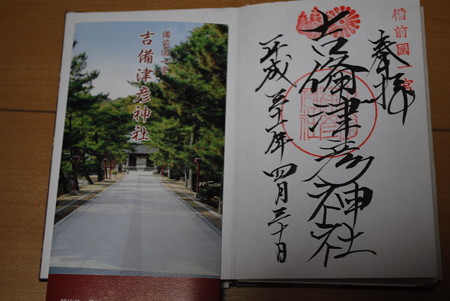 備前國一宮
吉備津彦神社
備前國一宮
奉拝
吉備津彦神社
平成三十一年四月三十日